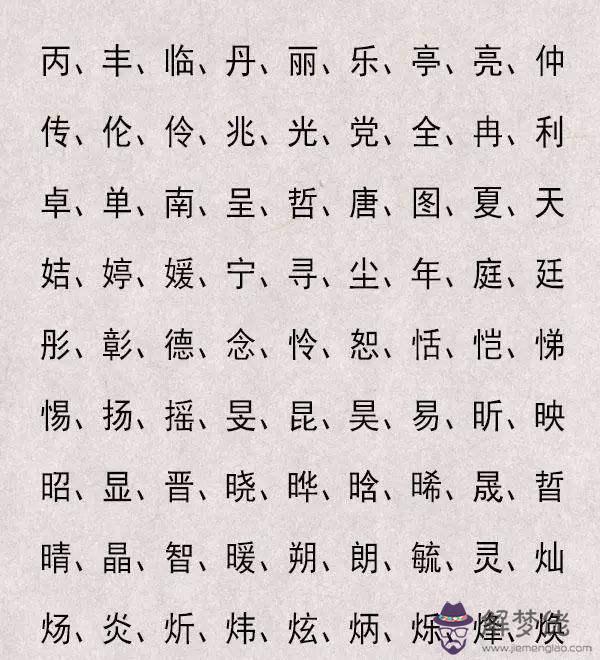 丙、丰、临、丹、丽、乐、亭、亮、仲
传、伦、伶、兆、光、党、全、冉、利
卓、单、南、呈、哲、唐、图、夏、天
姞、婷、媛、宁、寻、尘、年、庭、廷
彤、彰、德、念、怜、恕、恬、恺、悌
惕、扬、摇、旻、昆、昊、易、昕、映
昭、显、晋、晓、晔、晗、晞、晟、晢
晴、晶、智、暖、朔、朗、毓、灵、灿
炀、炎、炘、炜、炫、炳、烁、烽、焕
解梦佬
www.jiemenglao.com